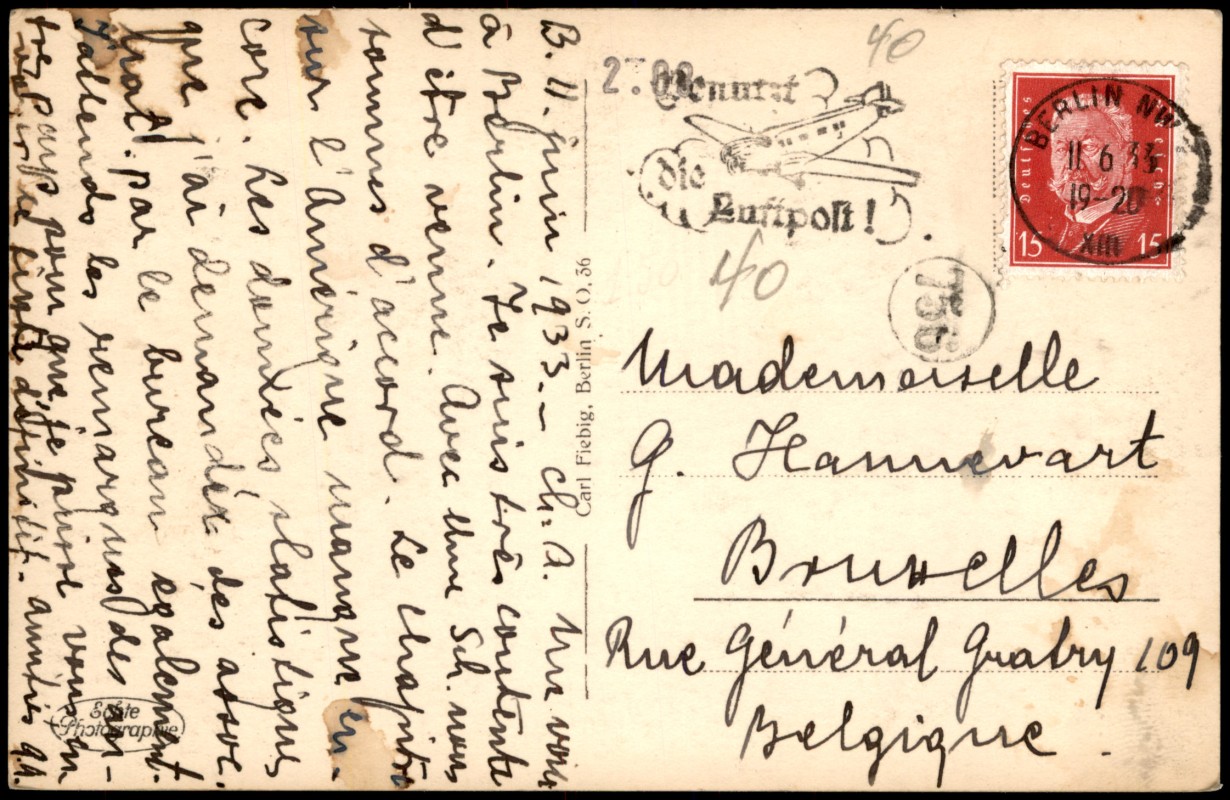 B. 11. juin 1933.- Ch. A. Me voici
à Berlin. Je suis très contente
d'être venue. Avec Mme Sch. nous
sommes d'accord. Le chapitre
sur l'Amérique manque en-
core. Les données statistiques
que j'ai demandéz des assoc.
par le bureau egalement.
J'attends les remarques des
tres pays pour que je puisse vous en
définitif. amitiés
Carl Fiebig, Berlin S.O. 36
Echte
Photographie
40
Benutzt
die
Luftpost!
40
BERLIN NW
11 6 33
19-20
XIII
Deutsches Reich
15 15
756
Mademoiselle
G. Hannevart
Bruxelles
Rue Général Gratry 109
Belgique.